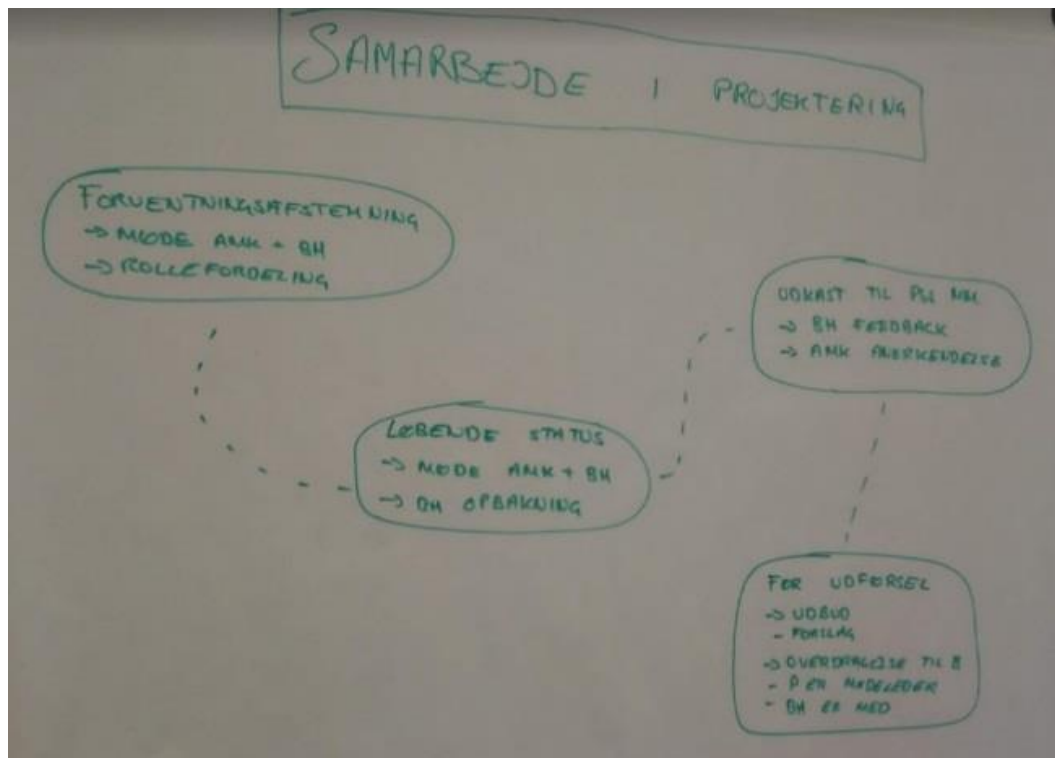 SAMARBEJDE I PROJEKTERING
FORVENTNINGSAFSTEMNING
→ MØDE AMK + BH
→ ROLLEFORDELING
LØBENDE STATUS
→ MØDE AMK + BH
→ BH OPBAKNING
UDKAST TIL
→ BH FEEDBACK
→ AMK ANERKENDELSE
FØR UDFØRSEL
→ UDBUD
- FORSLAG
→ OVERDRAGELSE TIL B
- P ER MØDELEDER
- BH ER MED